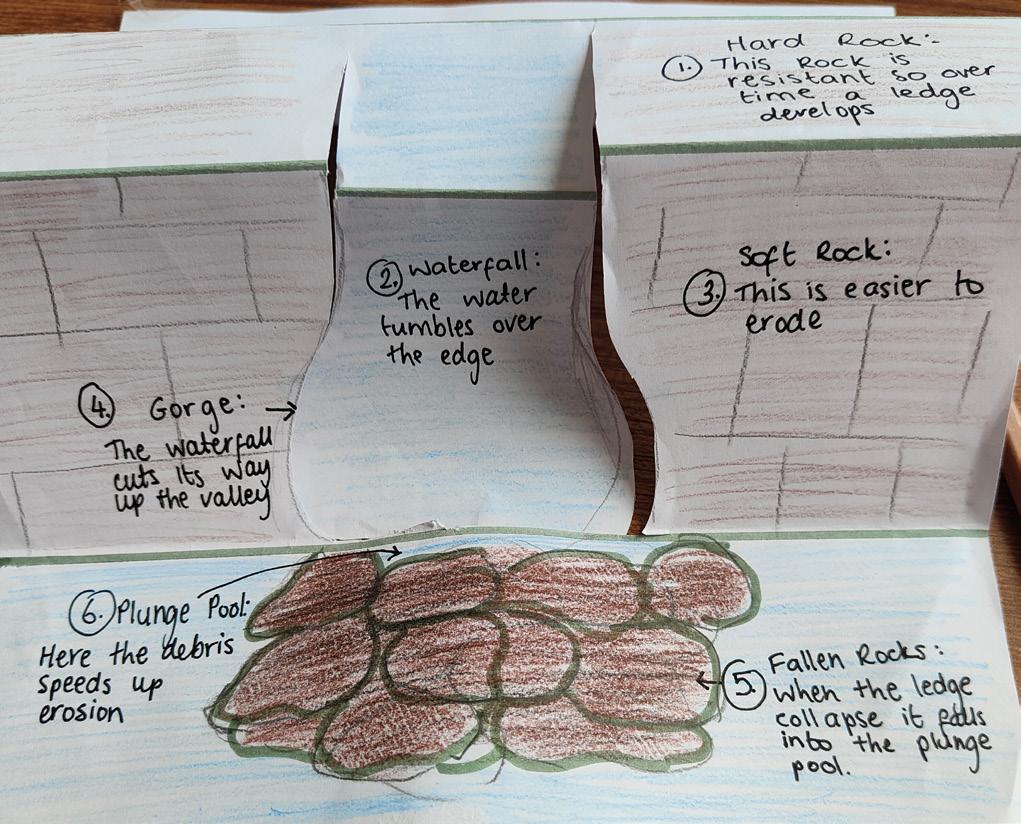 Hard Rock:-
1. This Rock is
resistant so over
time a ledge
develops
2. Waterfall:
The water
tumbles over
the edge
3. Soft Rock:
This is easier to
erode
4. Gorge:
The waterfall
cuts its way
up the valley
5. Fallen Rocks:
when the ledge
collapse it falls
into the plunge
pool.
6. Plunge Pool:
Here the debris
speeds up
erosion